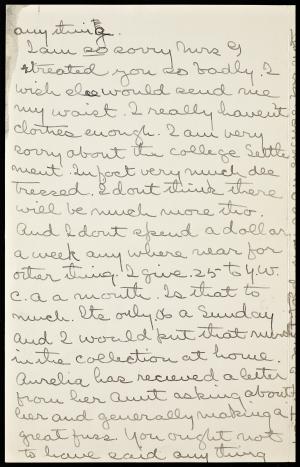 anything.
I am so sorry Mrs G
treated you so badly. I
wish she would send me
my waist. I really havent
clothes enough. I am very
sorry about the college Settle
ment. In fact very much dee
tressed. I dont think there
will be much more tho.
And I dont spend a dollar
a week any where near for
other thing. I give .25 to Y.W.
C.a a month. Is that to
much. Its only .6 a Sunday
and I would put that much
in the collection at home.
Aurelia has recieved a letter
from her aunt asking about
her and generally making a
great fuss. You ought not
to have said any thing